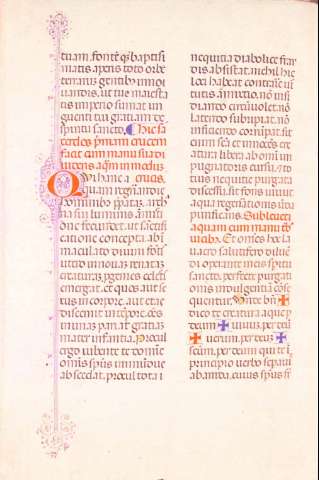 tuam. fontē q̄ baptis
matis aperis toto orbe
terrarum gentibus inno
uandis. ut tue maiesta
tis imperio sumat uni
geniti tui gratiam de
spiritu sancto. Hic sa
cerdos p̄mam crucem
facit cum manu sua di
uidens aq̄m in modum
Qui hanc a crucis.
quam regn̄andis
hominibus p̄paratā. archa
na sui luminis ammixti
one fecundet. ut sāctifi
catione concepta. ab im
maculato diuini fontis
utero innouam renata
creaturaz. p̄genies celestis
emergat. et ques aut se
xus in corpore. aut etas
discernit in tp̄ore. oēs
in unaz pariat gratiaz
mater infantia. Procul
ergo iubente te domine
omnis sp̄us inmundus
abscedat. procul tota i
nequitia diabolice frau
dis absistat. nichil hic
loci habeat contrarie uir
tutis amixtio. nō insi
diando circūuolet. nō
latendo subripiat. nō
inficiendo corrūpat. sit
hec sc̄a et innocēs cre
atura libera ab omī im
pugnatoris excursu. et to
tius nequitie purgata
discessu. sit fons uiuus
aqua regen̄ationis ūda
purificans. Subleuet
aquam cum manu tē
Et omnes hoc la
uacro salutifero dilui
di operante in eis spiritu
sancto. perfecte purgati
onis indulgentiā conse
quentur. Unde bn̄ ✠
dico te creatura aque p
deum ✠ uiuum. per deū
✠ uerum. per deuz ✠
sc̄um. per deum qui te ī
principio uerbo separau
ab arida. cuius sp̄us sr̄